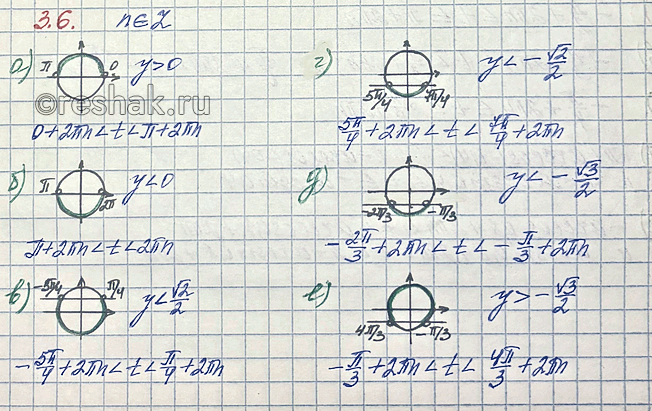 3.6. n∈Z
а) π 0 y>0
0+2πn<t<π+2πn
б) π 2π y<0
π+2πn<t<2πn
в) -5π/4 π/4 y<√2/2
-5π/4+2πn<t<π/4+2πn
г) 5π/4 7π/4 y<-√2/2
5π/4+2πn<t<7π/4+2πn
д) -2π/3 -π/3 y<-√3/2
-2π/3+2πn<t<-π/3+2πn
е) 4π/3 -π/3 y>-√3/2
-π/3+2πn<t<4π/3+2πn
©reshak.ru